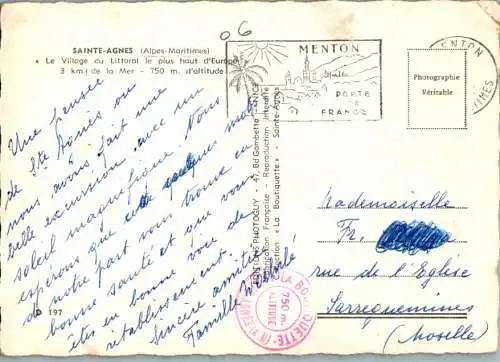 06
SAINTE-AGNES (Alpes-Maritimes)
« Le Village du Littoral le plus haut d'Europe »
3 km. de la Mer - 750 m. d'altitude
Une pensée
de Ste Agnès où
nous avons fait une
belle excursion avec un
soleil magnifique. Nous
espérons que quelques mots
de notre part vous trouve en
bonne santé et que vous
êtes en bonne voie de
rétablissement.
Sincère amitié
Famille
197
EDITIONS PHOTOGUY - 7, Bd Gambetta - NICE
Fabrication Française - Reproduction interdite
« La Boutiquette » - Sainte-Agnès
LA BOUTIQUETTE
750 m.
ALTITUDE
MENTON
PORTE
DE
FRANCE
MENTON
Photographie
Véritable
Mademoiselle
Fr.
rue de l'Eglise
Sarreguemines
(Moselle)